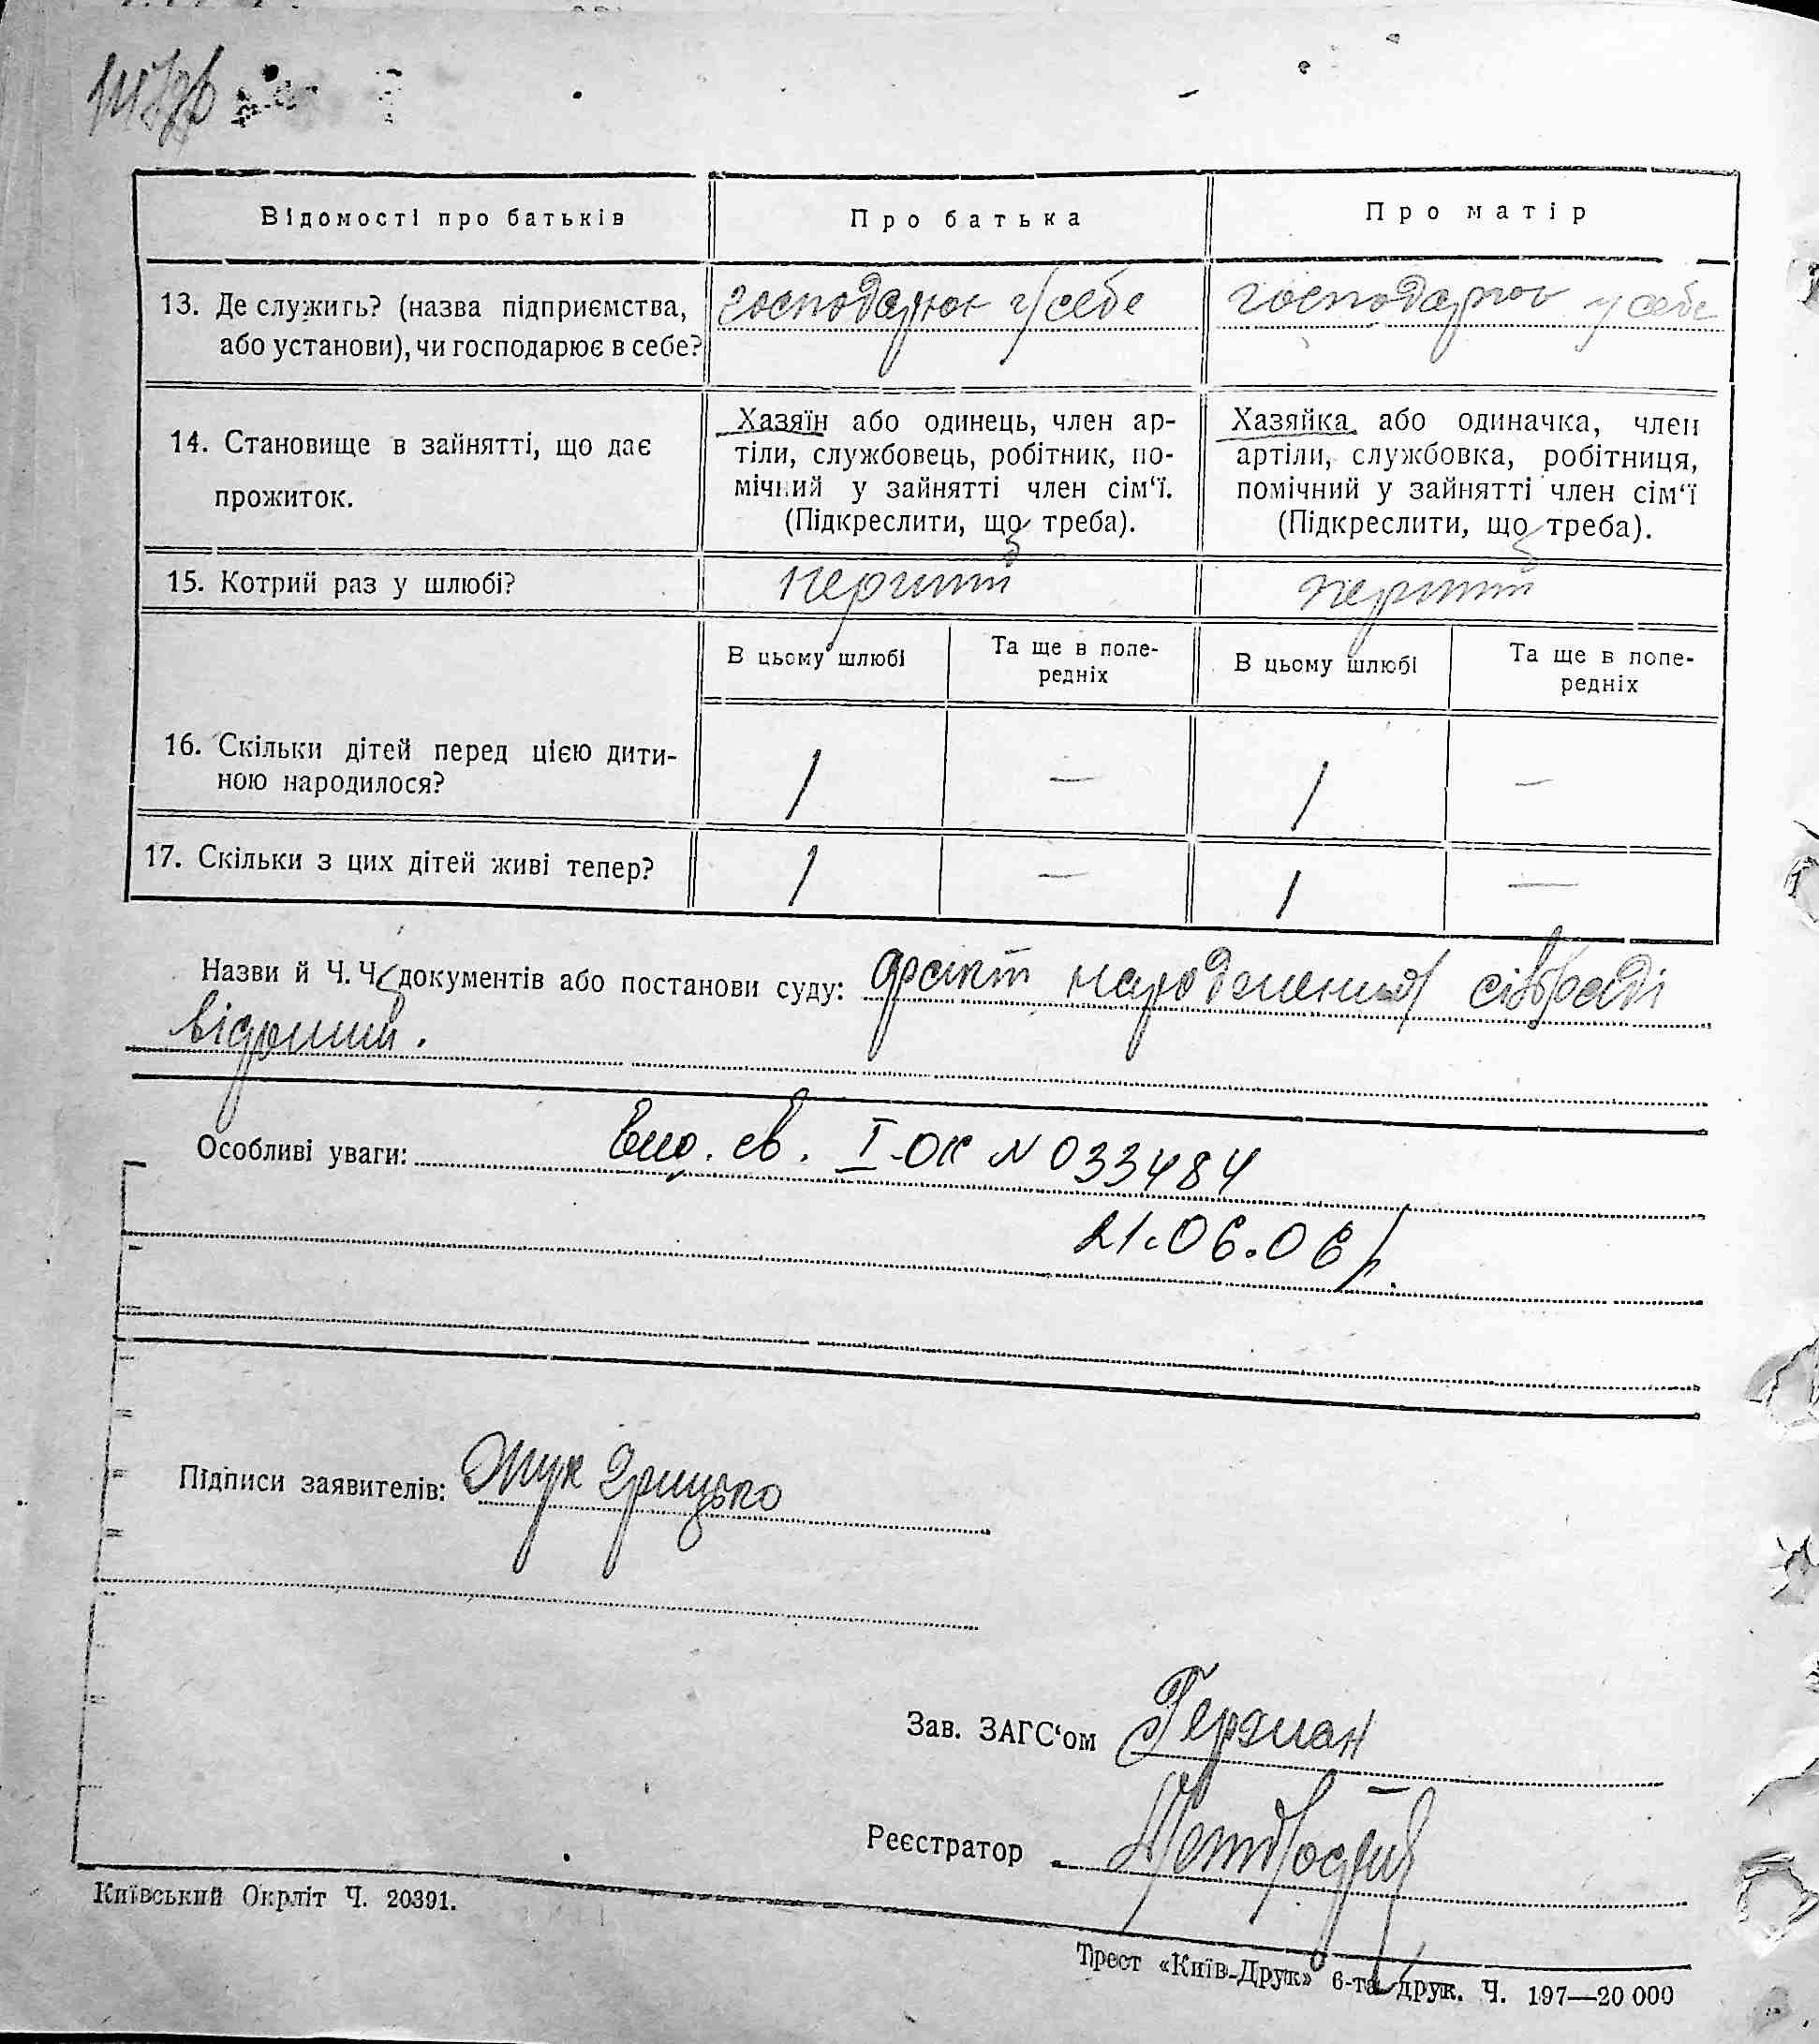 Відомості про батьків
Про батька
Про матір
13. Де служить? (назва підприємства,
або установи), чи господарює в себе?
господарює у себе
господарює у себе
14. Становище в зайнятті, що дає
прожиток.
Хазяїн або одинець, член ар-
тіли, службовець, робітник, по-
мічний у зайнятті член сім‘ї.
(Підкреслити, що треба).
Хазяйка або одиначка, член
артіли, службовка, робітниця,
помічний у зайнятті член сім‘ї
(Підкреслити, що треба).
15. Котрий раз у шлюбі?
перший
перший
В цьому шлюбі
Та ще в попе-
редніх
В цьому шлюбі
Та ще в попе-
редніх
16. Скільки дітей перед цією дити-
ною народилося?
1
—
1
—
17. Скільки з цих дітей живі тепер?
1
—
1
—
Назви й Ч. Ч. документів або постанови суду: факт народження сів/раді
відомий.
Особливі уваги: вид. св. I-ОК N 033484
21.06.06 р.
Підписи заявителів: Жук Грицько
Зав. ЗАГС‘ом
Реєстратор
Київський Окрліт Ч. 20391.
Трест «Київ-Друк» 6-та друк. Ч. 197—20 000